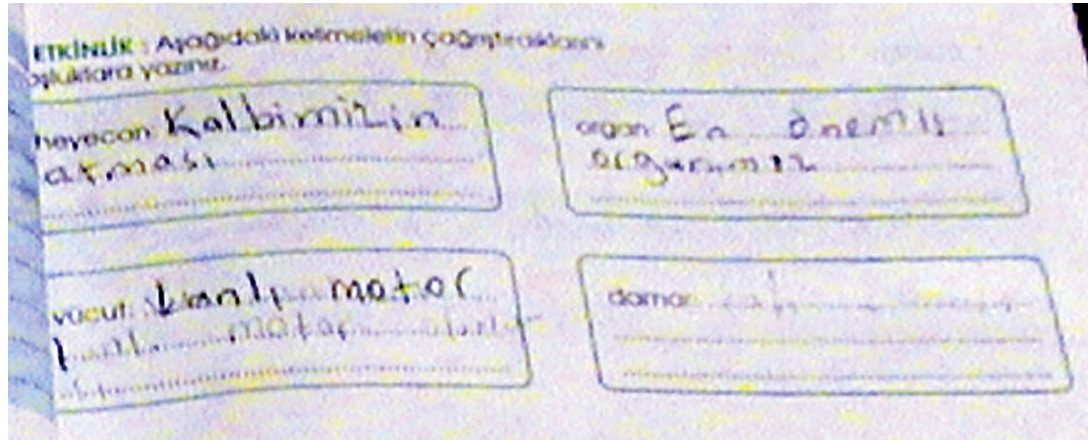 ETKİNLİK : Aşağıdaki kelimelerin çağrıştırdıklarını
oşluklara yazınız.
heyecan: Kalbimizin
atması
organ: En önemli
organımız
vücut: kanlı motor
motor
damar: